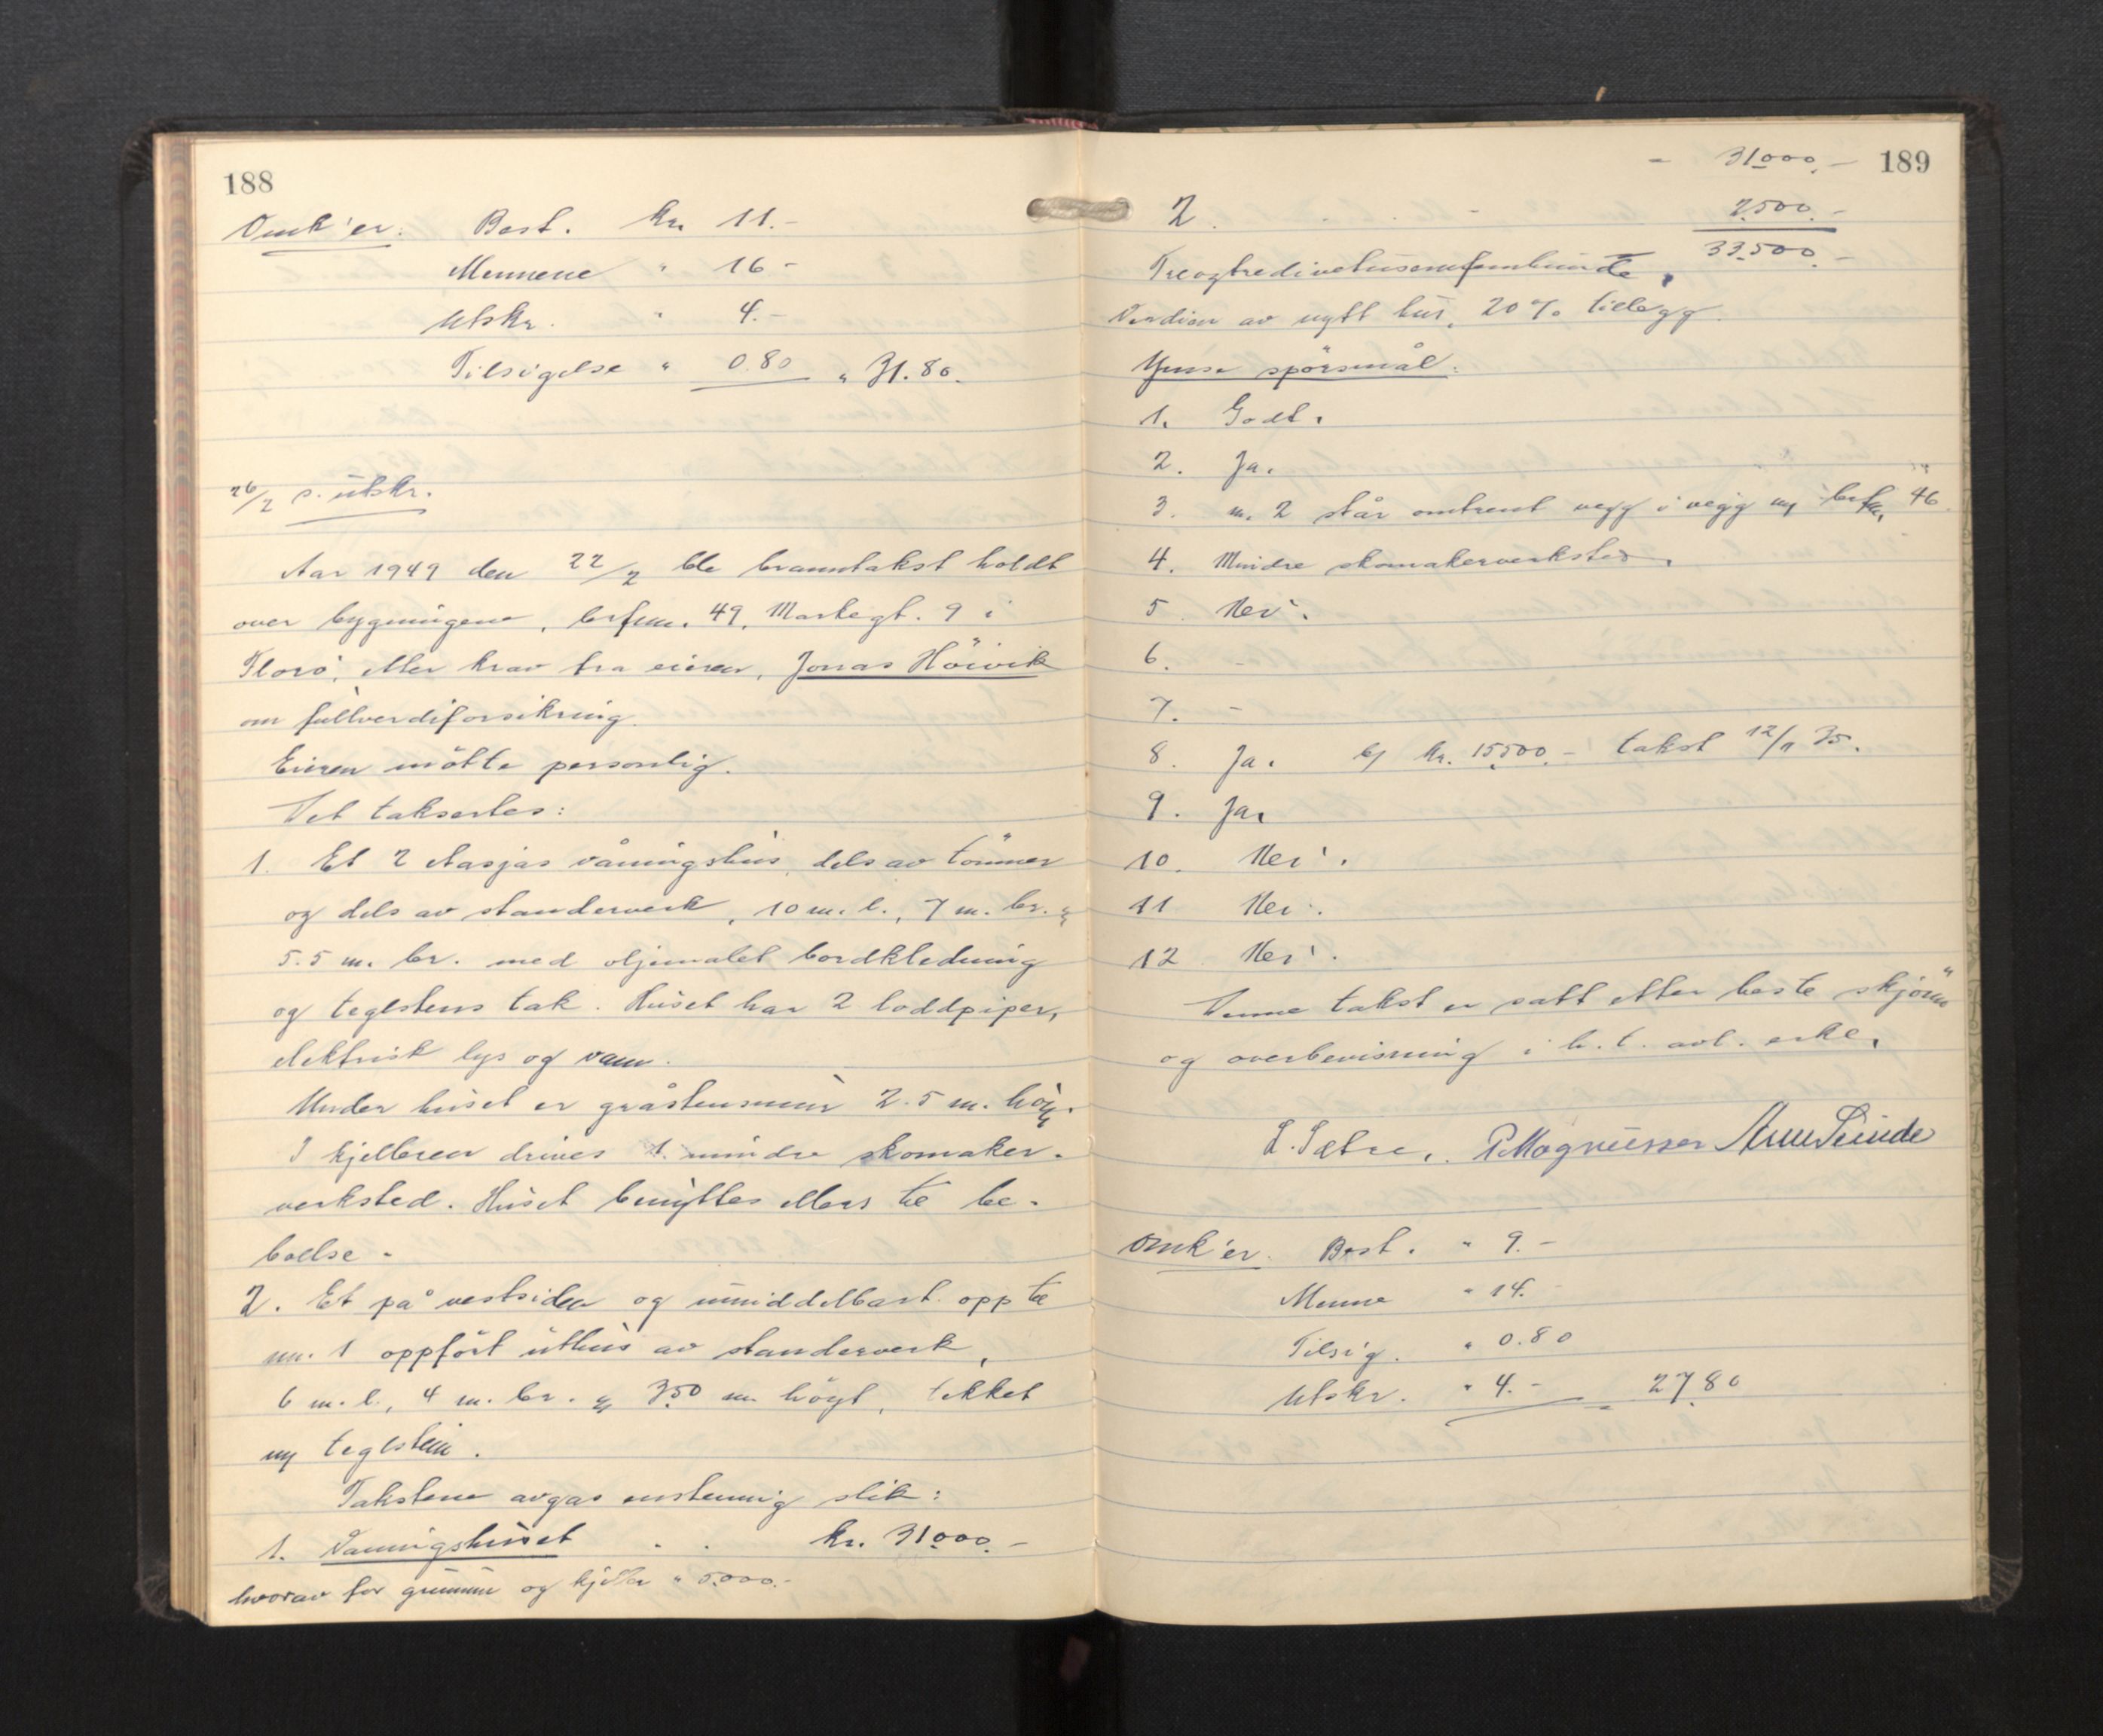 188
Omk'er: Best. kr. 11.-
Mennene " 16 -
Utskr. " 4.-
Tilsigelse " 0.80 " 31.80.
26/2 s. utskr.
Aar 1949 den 22/2 ble branntakst holdt
over bygningene, brfnr. 49, Markegt. 9 i
Florö, etter krav fra eieren, Jonas Höivik
om fullverdiforsikring.
Eieren mötte personlig.
Det taksertes:
1. Et 2 etasjes våningshus, dels av tömmer
og dels av standerverk, 10 m. l., 7 m. br. og
5.5 m. br. med oljemalet bordkledning
og teglstens tak. Huset har 2 loddpiper,
elektrisk lys og vann.
Under huset er gråstensmur 2.5 m. höi.
I kjelleren drives 1 mindre skomaker-
verksted. Huset benyttes ellers til be-
boelse.
2. Et på vestsiden og umiddelbart opp til
nr. 1 oppfört uthus av standerverk,
6 m. l., 4 m. br. og 3.50 m. höyt, tekket
m/ teglstein.
Takstene avgas enstemmig slik:
1. Vaningshuset . . kr. 31.000.-
hvorav for grunnmur og kjeller " 5.000.-
189
- 31.000.-
2. . . - 2.500.-
33.500.-
Treogtredivetusenfemhundre.
Verdien av nytt hus, 20% tillegg.
Ymse spörsmål:
1. Godt.
2. Ja.
3. nr. 2 står omtrent vegg i vegg m/ brfnr. 46
4. Mindre skomakerverksted.
5. Nei.
6. -
7. -
8. Ja. kr. 15.500.- takst 12/9 35.
9. Ja.
10. Nei.
11 Nei.
12. Nei.
Denne takst er satt etter beste skjönn
og overbevisning i h. t. avl. erkl.
L. Sætre, P Magnussen
Omk'er. Best. " 9.-
Menne " 14.-
Tilsig. " 0.80
Utskr. " 4.- = 27.80